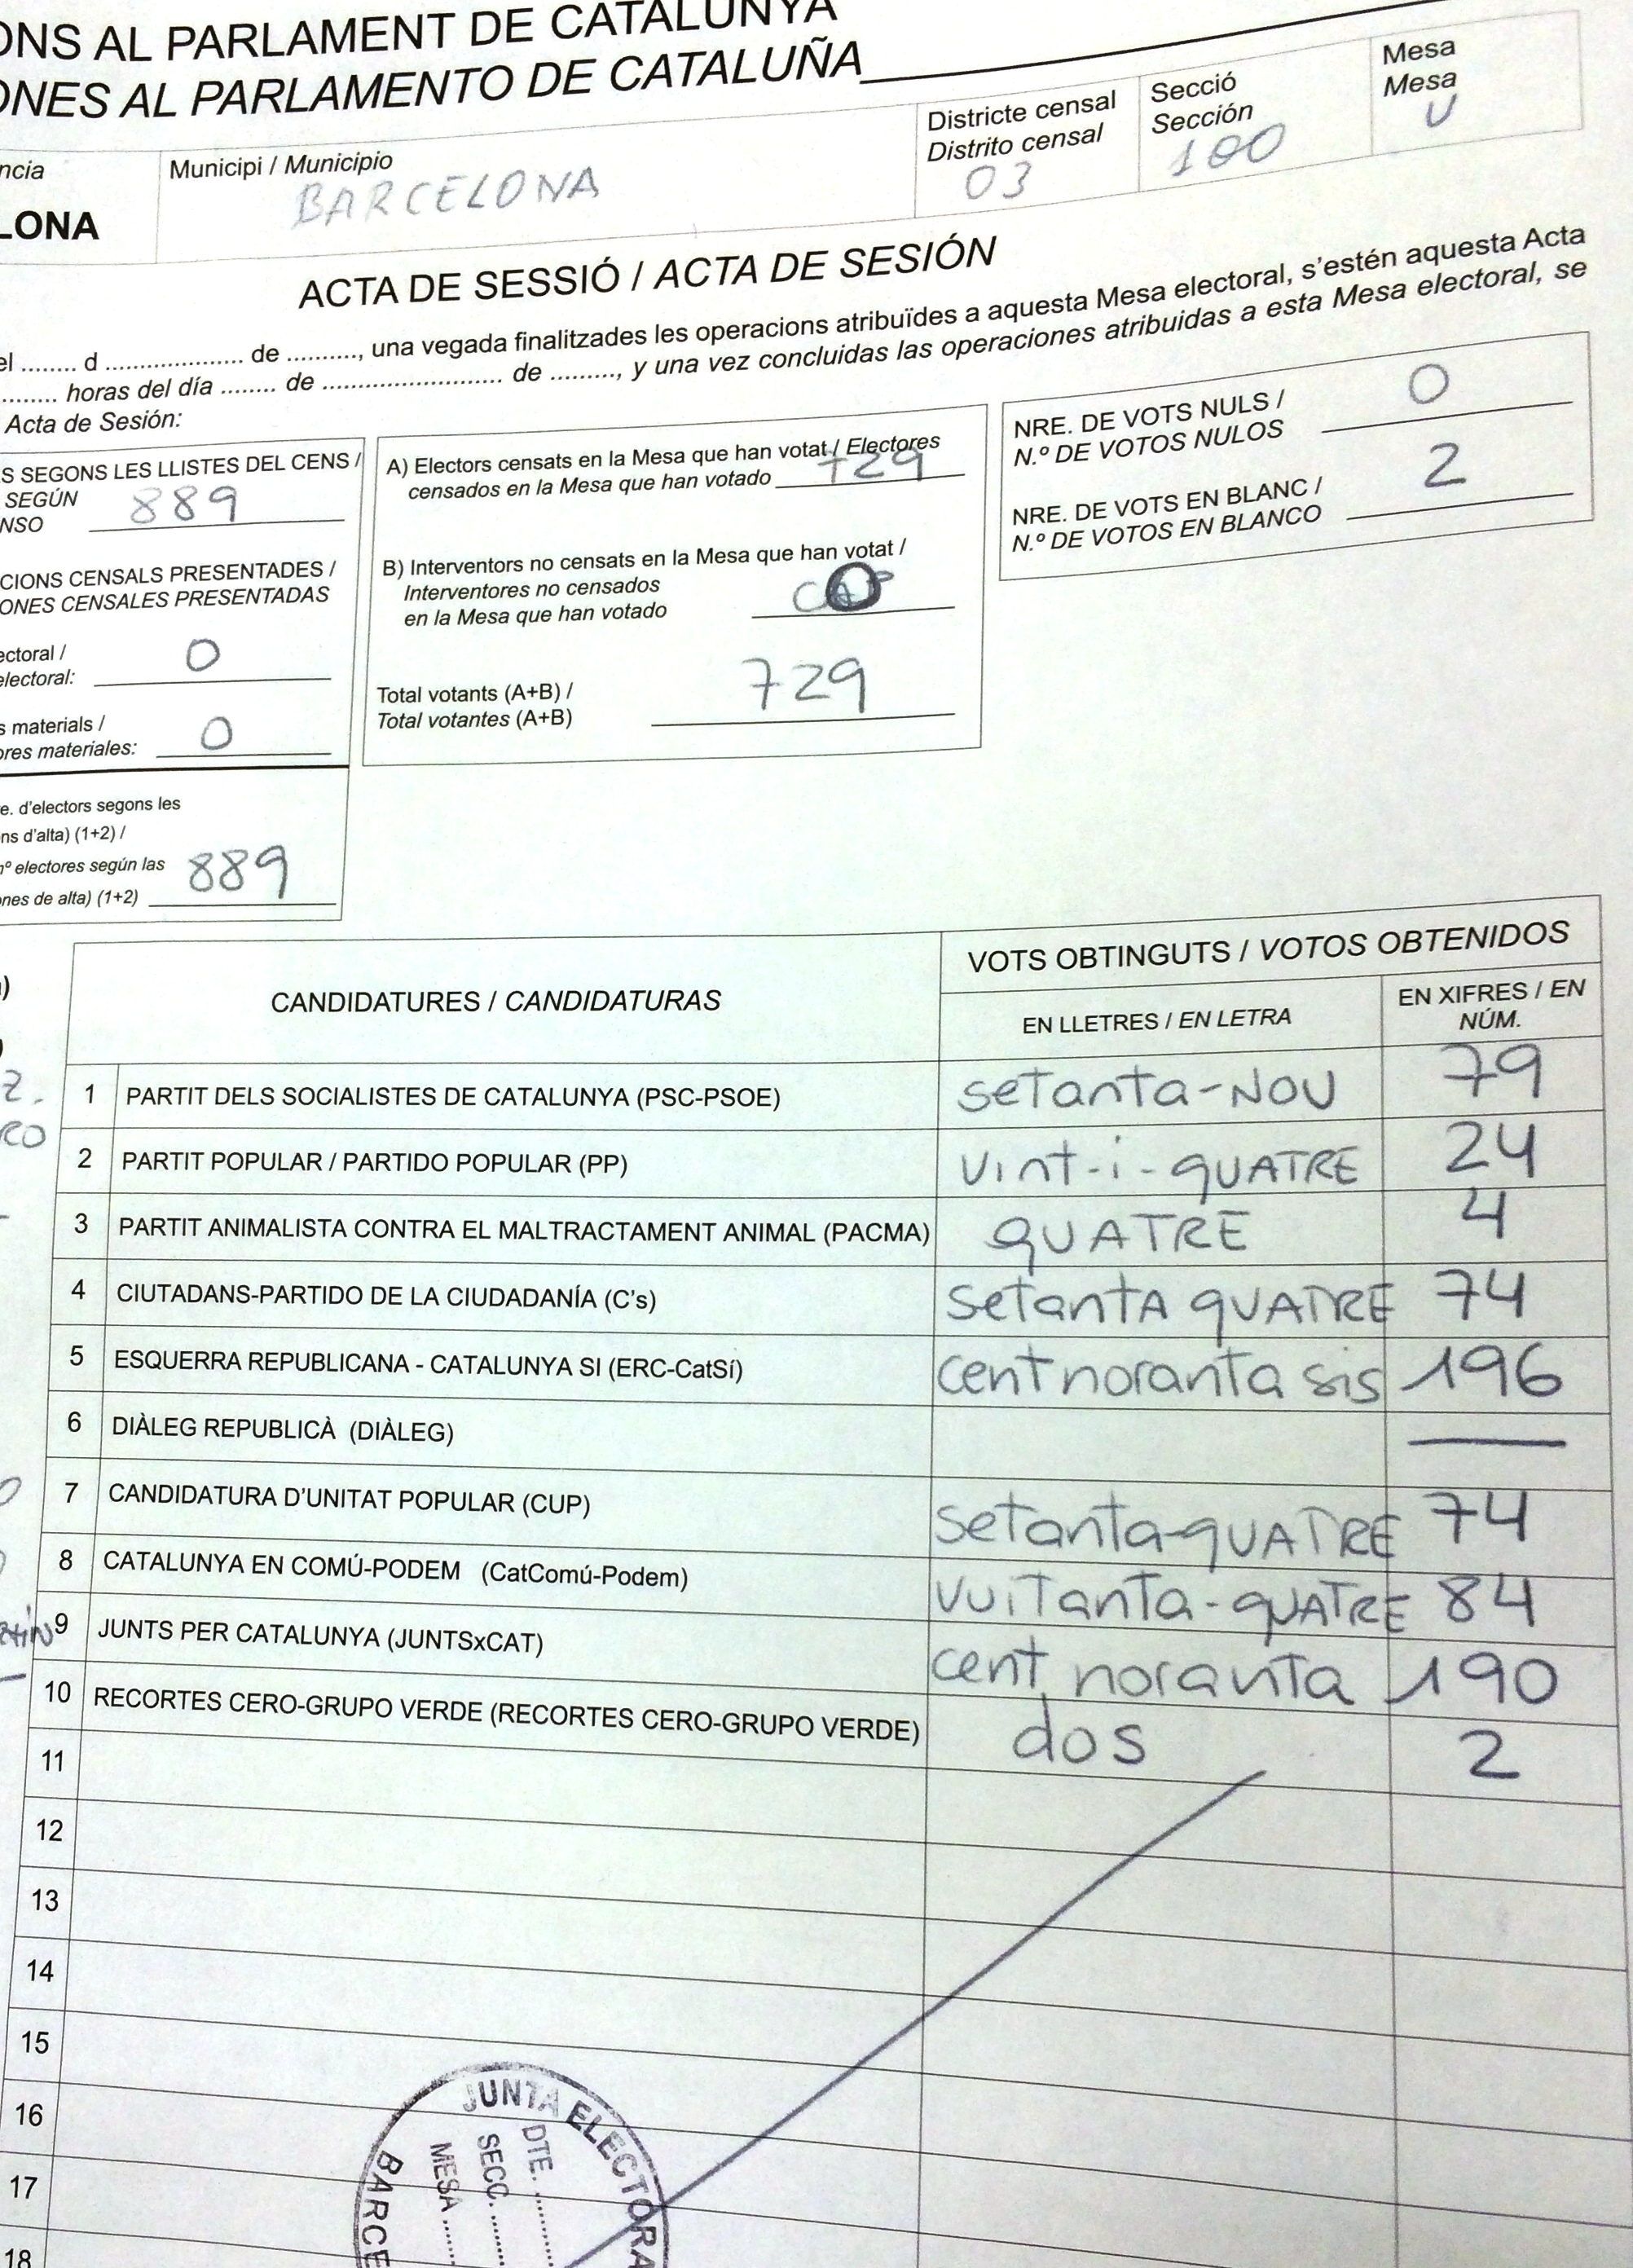 ONS AL PARLAMENT DE CATALUNYA
ONES AL PARLAMENTO DE CATALUÑA
ncia
LONA
Municipi / Municipio
BARCELONA
Districte censal
Distrito censal
03
Secció
Sección
100
Mesa
Mesa
U
ACTA DE SESSIÓ / ACTA DE SESIÓN
el ........ d .................. de .........., una vegada finalitzades les operacions atribuïdes a aquesta Mesa electoral, s'estén aquesta Acta
......... horas del día ........ de .......................... de .........., y una vez concluidas las operaciones atribuidas a esta Mesa electoral, se
Acta de Sesión:
S SEGONS LES LLISTES DEL CENS /
SEGÚN
NSO 889
CIONS CENSALS PRESENTADES /
ONES CENSALES PRESENTADAS
ectoral /
electoral: 0
s materials /
ores materiales: 0
e. d'electors segons les
ns d'alta) (1+2) /
nº electores según las
nes de alta) (1+2) 889
A) Electors censats en la Mesa que han votat / Electores
censados en la Mesa que han votado 729
B) Interventors no censats en la Mesa que han votat /
Interventores no censados
en la Mesa que han votado 0
Total votants (A+B) /
Total votantes (A+B) 729
NRE. DE VOTS NULS /
N.º DE VOTOS NULOS 0
NRE. DE VOTS EN BLANC /
N.º DE VOTOS EN BLANCO 2
CANDIDATURES / CANDIDATURAS
VOTS OBTINGUTS / VOTOS OBTENIDOS
EN LLETRES / EN LETRA
EN XIFRES / EN
NÚM.
1 PARTIT DELS SOCIALISTES DE CATALUNYA (PSC-PSOE) setanta-NOU 79
2 PARTIT POPULAR / PARTIDO POPULAR (PP) vint-i-QUATRE 24
3 PARTIT ANIMALISTA CONTRA EL MALTRACTAMENT ANIMAL (PACMA) QUATRE 4
4 CIUTADANS-PARTIDO DE LA CIUDADANÍA (C's) setantA QUATRE 74
5 ESQUERRA REPUBLICANA - CATALUNYA SI (ERC-CatSí) cent noranta sis 196
6 DIÀLEG REPUBLICÀ (DIÀLEG) —
7 CANDIDATURA D'UNITAT POPULAR (CUP) setanta-QUATRE 74
8 CATALUNYA EN COMÚ-PODEM (CatComú-Podem) vuitanta-QUATRE 84
9 JUNTS PER CATALUNYA (JUNTSxCAT) cent noranta 190
10 RECORTES CERO-GRUPO VERDE (RECORTES CERO-GRUPO VERDE) dos 2
11
12
13
14
15
16
17
18
JUNTA ELECTORA
BARCE
DTE. ..........
SECC. ..........
MESA ..........